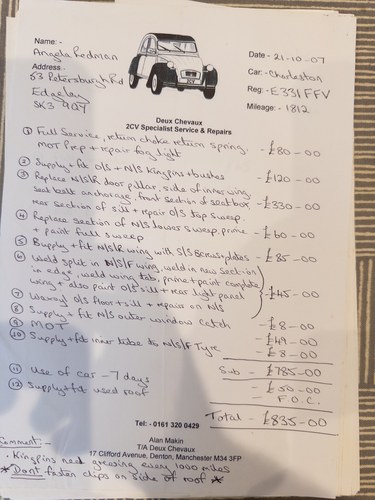 Name:-
Angela Redman
Address:-
53 Petersburgh Rd
Edgeley
SK3 9QY
Date - 21-10-07
Car:- Charleston
Reg:- E331FFV
Mileage:- 1812
Deux Chevaux
2CV Specialist Service & Repairs
① Full Service, return choke return spring. MOT Prep + repair fog light - £80-00
② Supply + fit O/S + N/S Kingpins + bushes - £120-00
③ Replace N/S/R door pillar, side of inner wing, seat belt anchorage, front section of seatbox rear section of sill + repair O/S top sweep. - £330-00
④ Replace section of N/S lower sweep, prime + paint full sweep - £60-00
⑤ Supply + fit N/S/R wing with S/S screws + plates - £85-00
⑥ Weld split in N/S/F wing, weld in new section in edge, weld wing tab, prime + paint complete wing + also paint O/S sill + rear light panel
⑦ Waxoyl O/S floor + sill + repairs on N/S - £45-00
⑧ Supply + fit N/S outer window catch - £8-00
⑨ MOT - £49-00
⑩ Supply + fit inner tube to N/S/F Tyre - £8-00
Sub - £785-00
⑪ Use of car - 7 days - £50-00
⑫ Supply + fit used roof - F.O.C.
Total - £835-00
Tel:- 0161 320 0429
Alan Makin
T/A Deux Chevaux
17 Clifford Avenue, Denton, Manchester M34 3FP
Comment:-
• Kingpins need greasing every 1000 miles
* Dont fasten clips on side of roof *